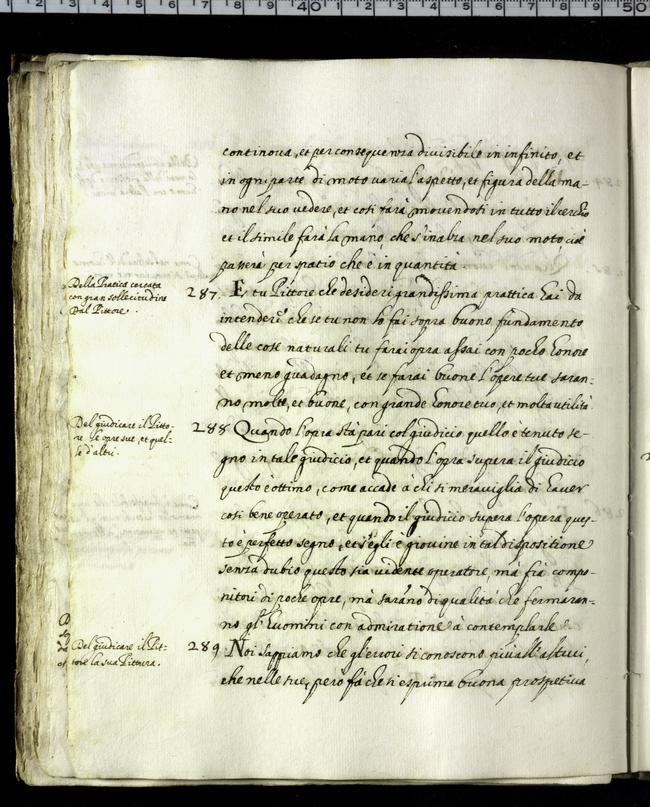 continova, et per consequenza divisibile in infinito, et
in ogni parte di moto varia l'aspetto, et figura della ma-
no nel suo vedere, et cosi farà movendosi in tutto il cerchio
et il simile farà la mano, che s'inalza nel suo moto, cioè
passerà per spatio che è in quantità
Della Pratica cercata
con gran sollecitudine
dal Pittore.
287. Et tu Pittore che desideri grandissima prattica hai da
intendere che se tu non la fai sopra buono fundamento
delle cose naturali tu farai opra assai con pocho honore
et meno guadagno, et se farai buone l'opere tue saran-
no molte, et buone, con grande honore tuo, et molta utilità
Del giudicare il Pitto-
re le opre sue, et quel-
le d'altri.
288 Quando l'opra stà pari col giudicio quello è tenuto se-
gno in tale giudicio, et quando l'opra supera il giudicio
questo è ottimo, come accade à chi si meraviglia di haver
cosi bene operato, et quando il giudicio supera l'opera ques-
to è perfetto segno, et s'egli è giovine in tal dispositione
senza dubio questo sia vidente operatore, mà fia compo-
nitori di poche opre, mà sarano di qualità che fermaran-
no gl'huomini con admiratione à contemplarle
Del giudicare il Pit-
tore la sua Pittura.
289. Noi sappiamo che gl'erori si conoscono piu all'altrui,
che nelle tue, pero fà che ti esprima buona prospetiva